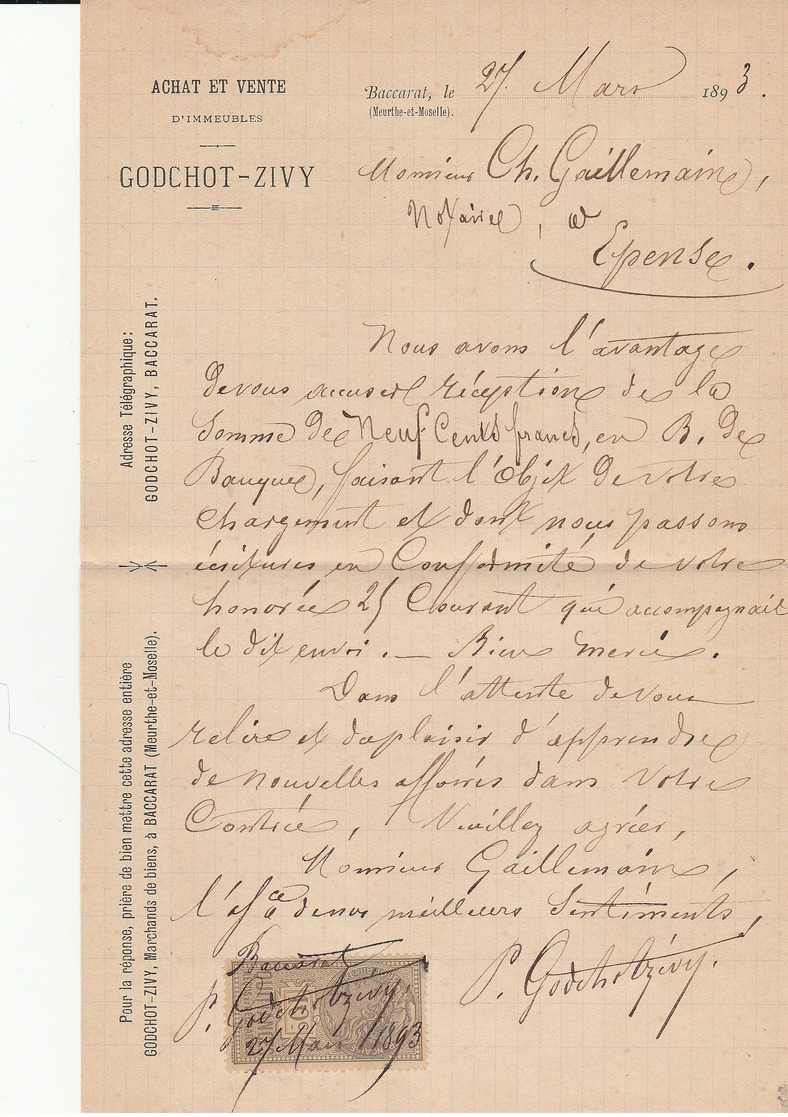 ACHAT ET VENTE
D'IMMEUBLES
GODCHOT-ZIVY
Baccarat, le 27 Mars 1893.
(Meurthe-et-Moselle).
Monsieur Ch. Gaillemain,
Notaire, à
Epense.
Adresse Télégraphique:
GODCHOT-ZIVY, BACCARAT.
Pour la réponse, prière de bien mettre cette adresse entière
GODCHOT-ZIVY, Marchands de biens, à BACCARAT (Meurthe-et-Moselle).
Nous avons l'avantage
de vous accuser réception de la
Somme de Neuf Cents francs, en B. de
Banque, faisant l'Objet de votre
chargement et dont nous passons
écritures en Conformité de votre
honorée 25 Courant qui accompagnait
le dit envoi. — Bien merci.
Dans l'attente de vous
relire et du plaisir d'apprendre
de nouvelles affaires dans votre
Contrée, Veuillez agréer,
Monsieur Gaillemain,
l'assce de nos meilleurs Sentiments,
P. Godchotzivy.
Baccarat
P. Godchotzivy.
27 Mars 1893